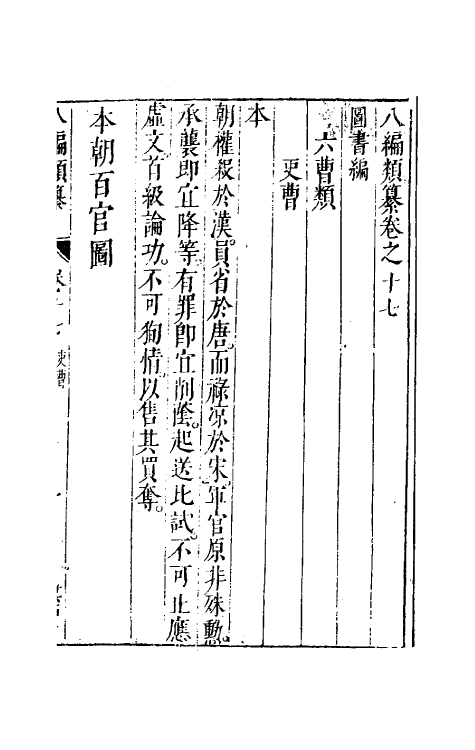 八編類纂卷之十七
圖書編
六曹類
吏曹
本
朝權殺於漢。員省於唐。而祿凉於宋。軍官原非殊勲。
承襲即宜降等。有罪即宜削廕。起送比試。不可止應
虛文。首級論功。不可狥情。以售其買奪。
本朝百官圖
八編類纂 卷十七 吏曹